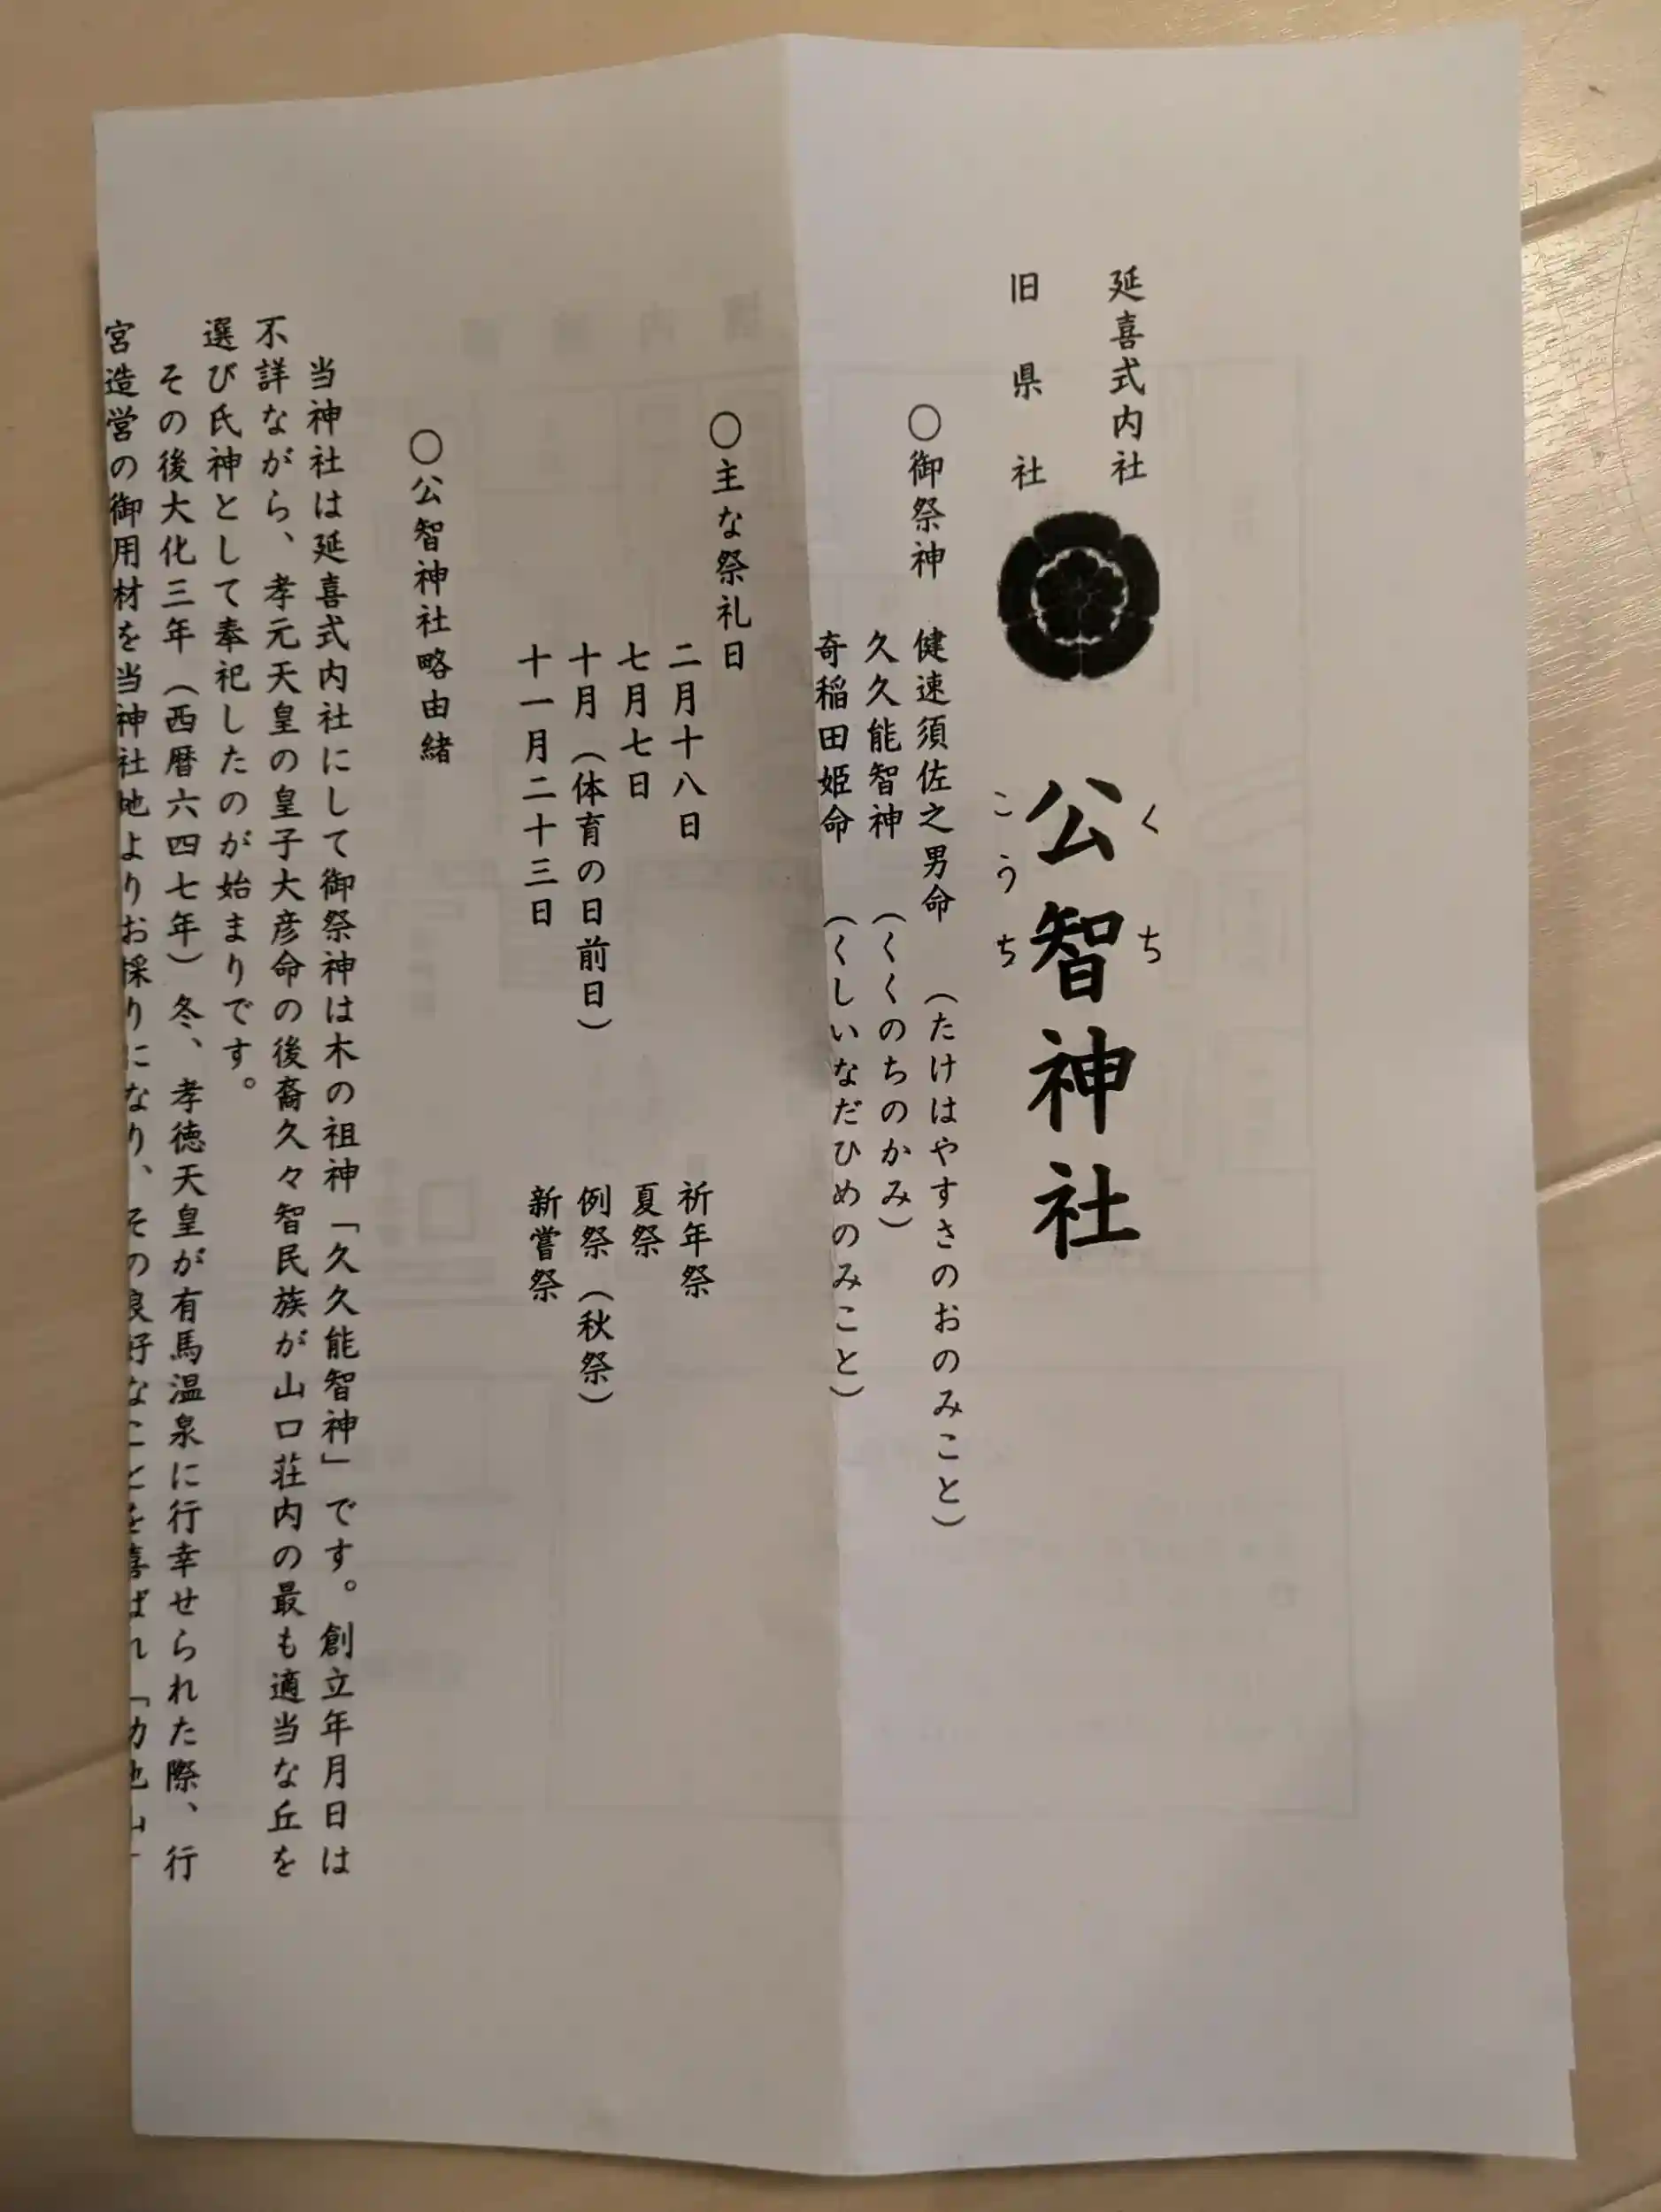 延喜式内社
旧県社
くち
公智神社
こうち
○御祭神 健速須佐之男命 (たけはやすさのおのみこと)
久久能智神 (くくのちのかみ)
奇稲田姫命 (くしいなだひめのみこと)
○主な祭礼日
二月十八日 祈年祭
七月七日 夏祭
十月(体育の日前日) 例祭(秋祭)
十一月二十三日 新嘗祭
○公智神社略由緒
当神社は延喜式内社にして御祭神は木の祖神「久久能智神」です。創立年月日は
不詳ながら、孝元天皇の皇子大彦命の後裔久々智民族が山口荘内の最も適当な丘を
選び氏神として奉祀したのが始まりです。
その後大化三年(西暦六四七年)冬、孝徳天皇が有馬温泉に行幸せられた際、行
宮造営の御用材を当神社地よりお採りになり、その良好なことを喜ばれ「功地山」